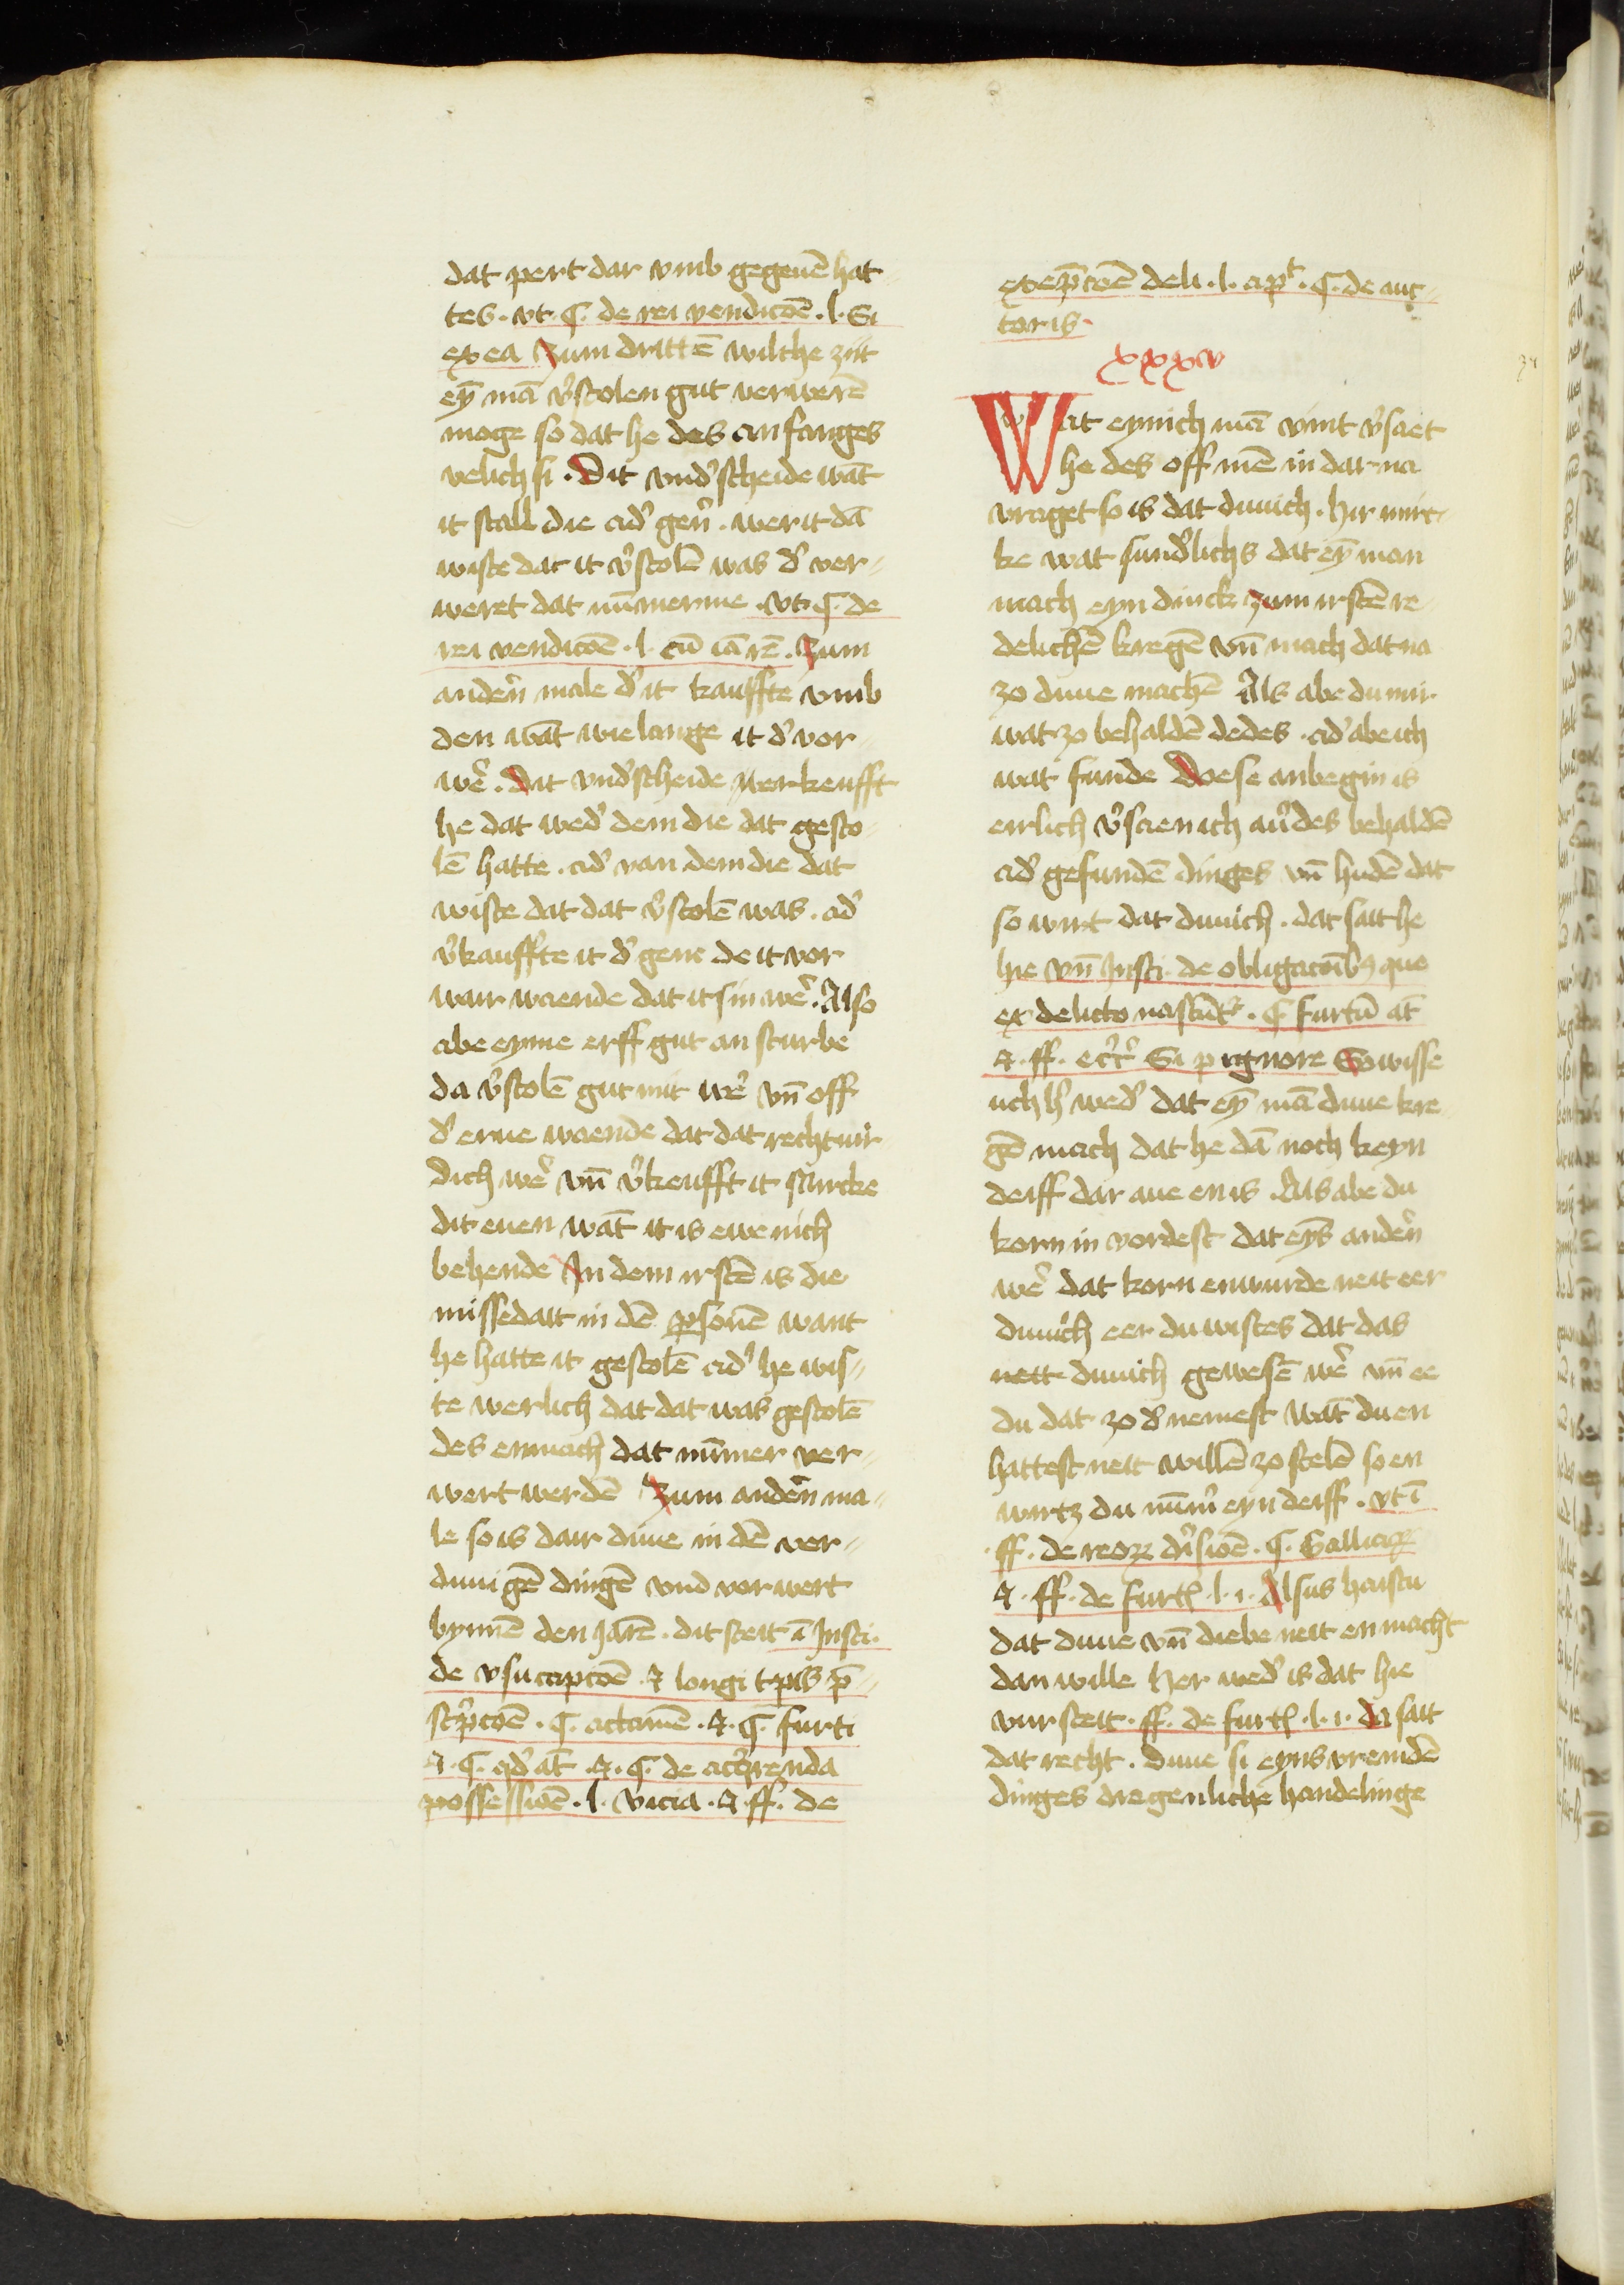 dat pert dar vmb gegeuē hat
tes · vt · C · de rei vendicōe · l · Si
ex ea Zum drittē wilche zijt
ey̅ mā v'stolen gut verwerē
moge so dat he des anfanges
velich si · Dit vnd'scheide wāt
it stall die ad' gen' · wer it dā
wiste dat it v'stolē was d' ver
weret dat nūmerme · vt · C · de
rei vendicōe · l · cū iā rē · Zum
anden' male d' it kauffte vmb
den wāt wie lange it d' vor
we' · Dat vnd'scheide werkeufft
he dat wed' dem die dat gesto
lē hatte · ad' van dem die dat
wiste dat dat v'stolē was · ad'
v'kauffte it d' gene de it vor
wair waende dat it sin we' · Also
abe eyme erff gut an sturbe
da v'stolē gut mit we' vn̄ off
d' erue waende dat dat recht wir
dich we' vn̄ v'keufft it
dit euen wāt it is ewenich
behende In dem irstē is die
missedait in dē psonē want
he hatte it gestolē ad' he wis
te werlich dat dat was gestolē
des enmach dat nūmer ver
wert werdē Zum anden' ma
le so is dair diue in dē ver
duuigē dingē vnd vorwert
bynnē den Jarē · dit steit ī Insti ·
de vsucapcōe · & longi tpis p̄
sc'pcōe · C · actamē · & · C · furti
& · C · qd' āt · & · C · de acq'renda
possessiōe · l · vicia · & · ff · de
excepcōe deli · l · apt · C · de auc
toris
xxxv
Wat eynich mā vint v'saet
he des off mē in dar na
vraget so is dat duuich · hir mirc
ke wat sund'lichs dat ey̅ man
mach eyn dinck zum irstē re
delichē kregē vn̄ mach dat na
zo diue machē Als abe du mir
wat zo behaldē dedes · ad' abe ich
wat funde Diese anbegin is
eirlich v'saen ich au'des behaldē
ad' gefundē dinges vn̄ hudē dat
so wirt dat duuich · dat sait he
hie vn̄ Insti · de obligacōibꝰ que
ex delicto nascūt' · C · furtū āt
& · ff · Si pignore So wisse
uch h' wed' dat ey̅ mā diue kre
gē mach dat he dā noch keyn
deiff dar aue en is · Als abe du
korn in vordest dat eyns anden'
we' dat korn enwurde neit eer
duuich eer du wistes dat das
neit duuich gewesē we' vn̄ ee
du dat zo d' nemest wāt du en
hattest neit willē zo stelē so en
wirtz du nūm' eyn deiff · vt ī
· ff · de reoꝝ diuisiōe · C · Gallicaꝝ
& · ff · de furt · l · i · Alsus haistu
dat diue vn̄ diebe neit en macht
dan wille Her wed' is dat hie
vur steit · ff · de furt · l · i · da sait
dat recht · diue si eyns vremdē
dinges dregenliche handelinge